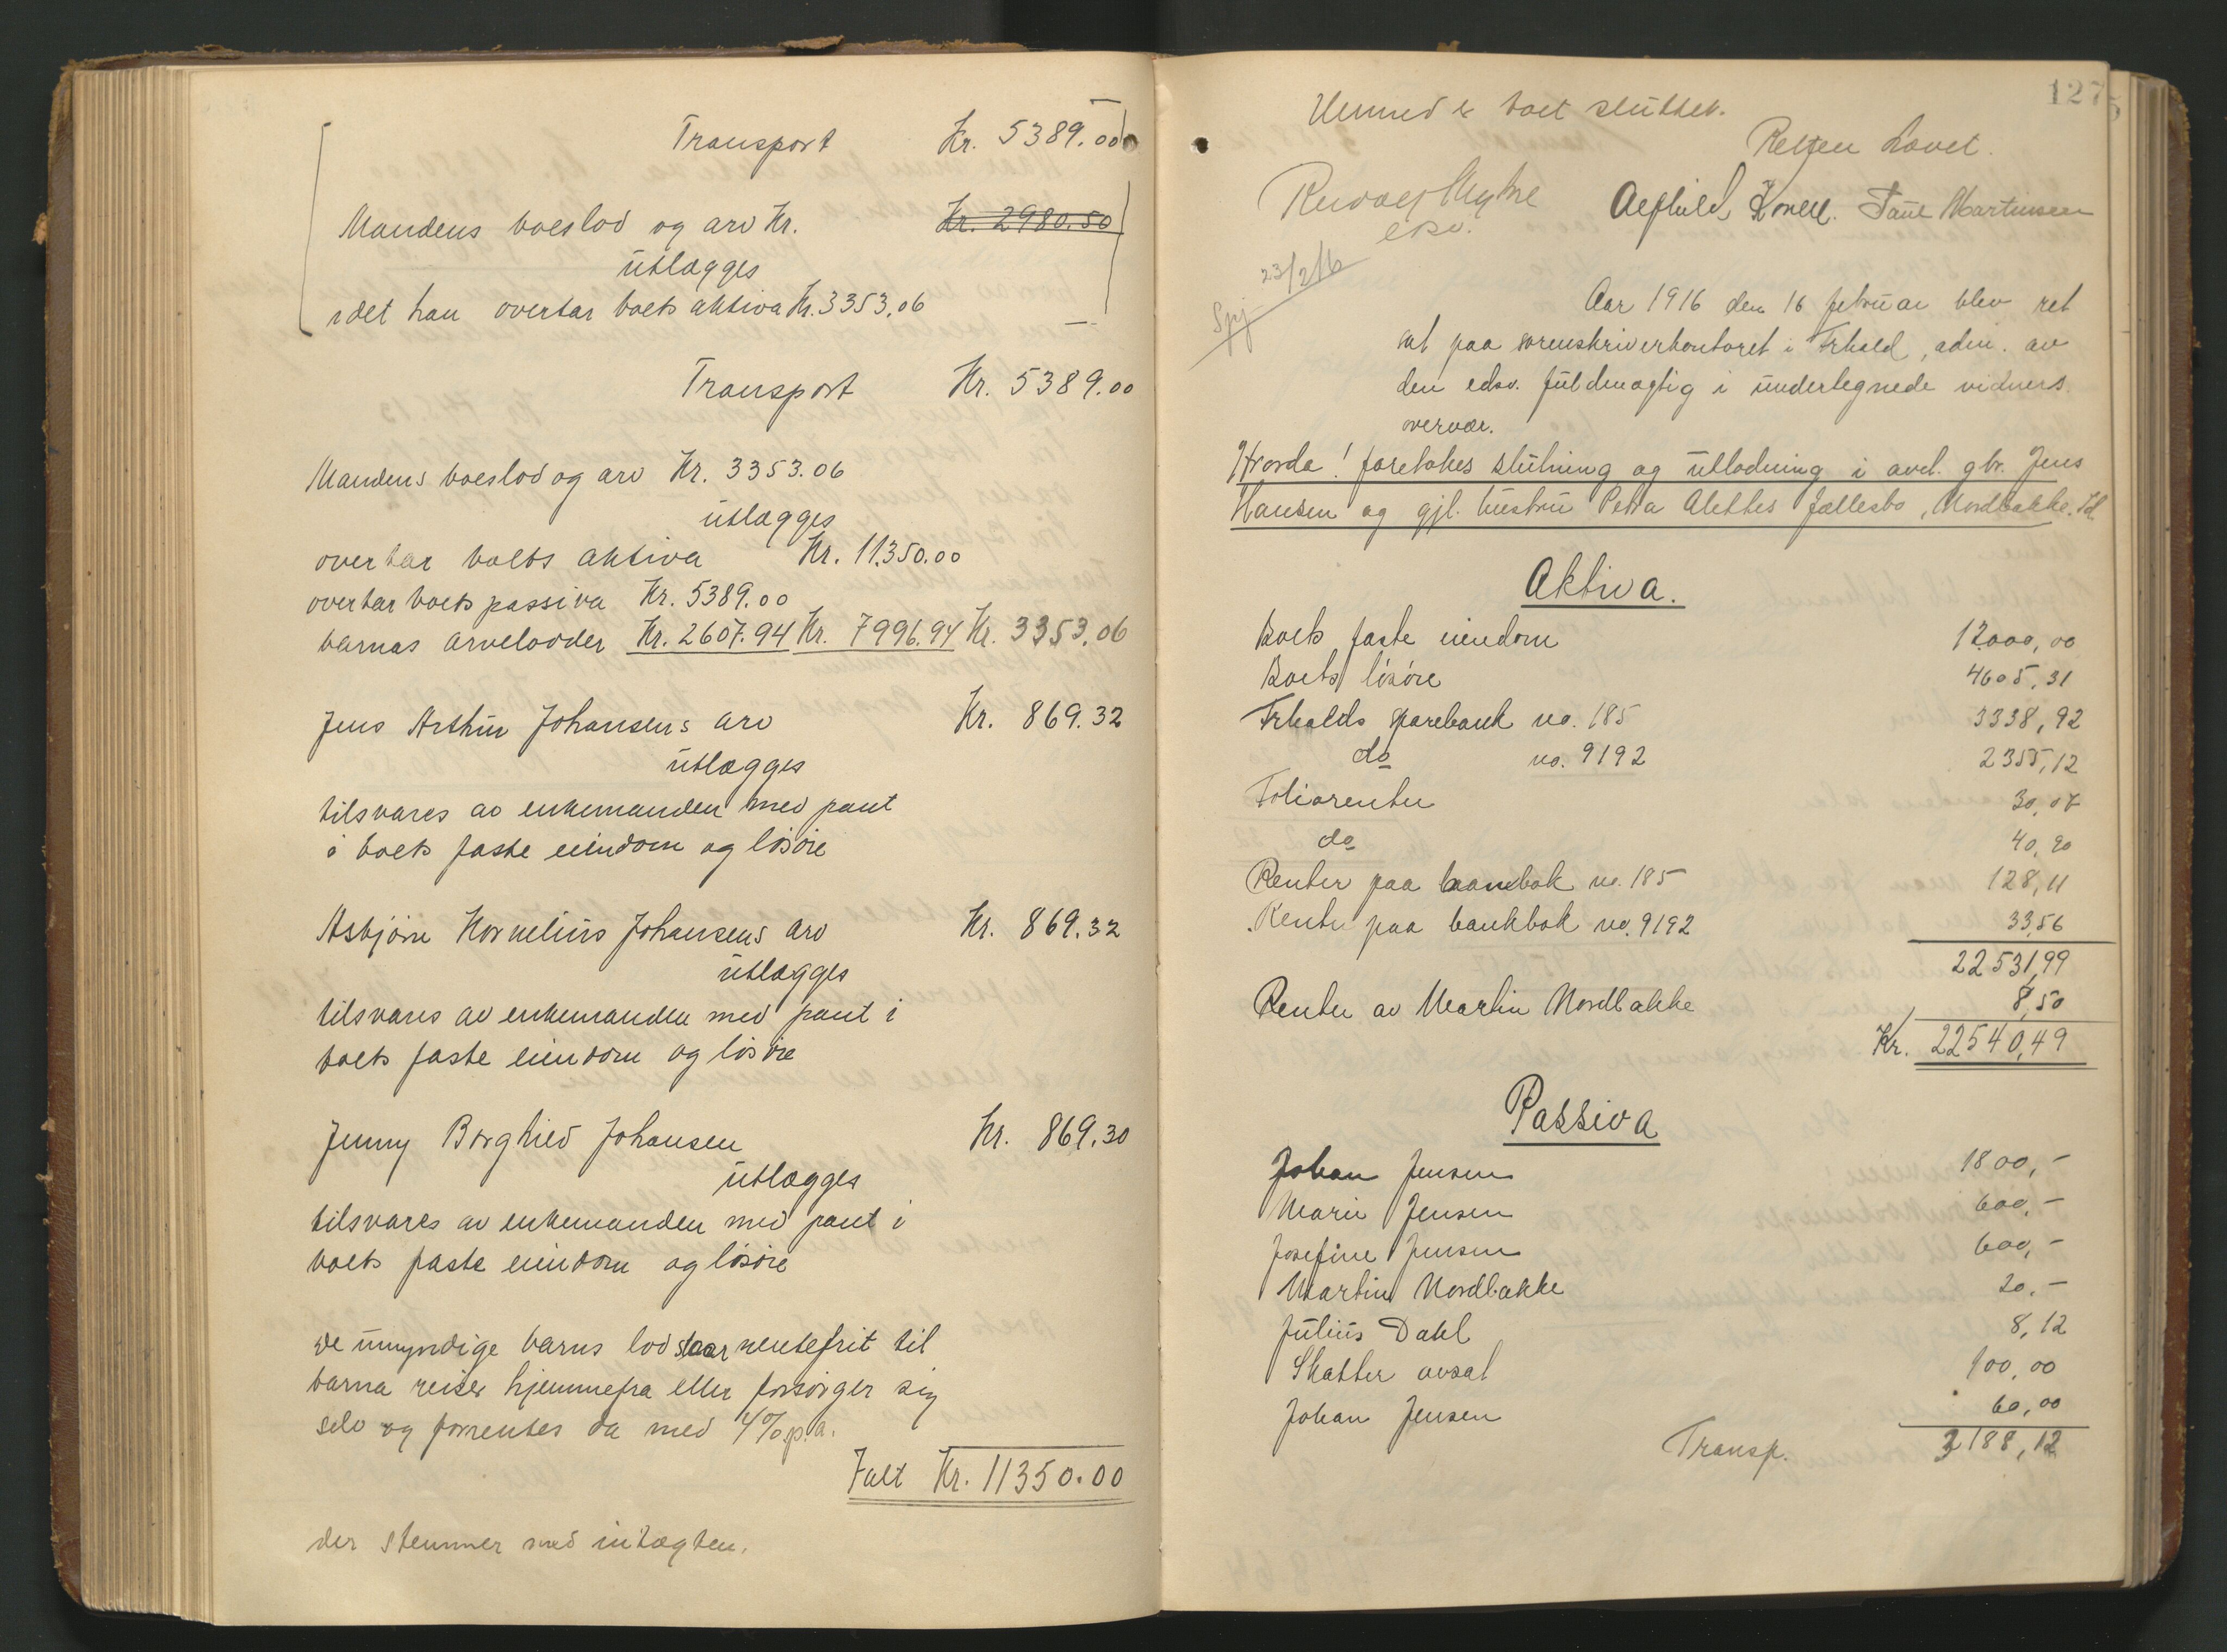 Transport Kr. 5389.00
Mandens boeslod og arv Kr. Kr. 2980.50
utlægges
idet han overtar boets aktiva Kr. 3353.06
Transport Kr. 5389.00
Mandens boeslod og arv Kr. 3353.06
utlægges
overtar boets aktiva Kr. 11.350.00
overtar boets passiva Kr. 5389.00
barnas arvelodder Kr. 2607.94 Kr. 7996.94 Kr. 3353.06
Jens Arthur Johansens arv Kr. 869.32
utlægges
tilsvares av enkemanden med pant
i boets faste eiendom og løsøre
Asbjørn Kornelius Johansens arv Kr. 869.32
utlægges
tilsvares av enkemanden med pant i
boets faste eiendom og løsøre
Jenny Borghild Johansen Kr. 869.30
utlægges
tilsvares av enkemanden med pant i
boets faste eiendom og løsøre
De umyndige barns lod staar rentefrit til
barna reiser hjemmefra eller forsørger sig
selv og forrentes da med 4% p.a.
Ialt Kr. 11350.00
der stemmer med indtægten.
127
Hermed er boet sluttet.
Retten hævet.
edsv.
Paul Martinsen
23/2 16
Aar 1916 den 16 februar blev ret
sat paa sorenskriverkontoret i Frhald, adm. av
den edsv. fuldmægtig i undertegnede vidners
overvær.
Hvorda! foretokes slutning og utlodning i avd. gbr. Jens
Hansen og gjl. hustru Petra Alettes fællesbo, Nordbakke, Id
Aktiva.
Boets faste eiendom 12.000,00
Boets løsøre 4605,31
Frhalds sparebank no. 185 3338,92
do no. 9192 2355,12
Foliorenter 30,07
do 40,90
Renter paa bankbok no. 185 128,11
Rente paa bankbok no. 9192 33,56
22531,99
Renter av Martin Nordbakke 8,50
Kr. 22540,49
Passiva
Johan Jensen 1800,-
Marie Jensen 600,-
Josefine Jensen 600,-
Martin Nordbakke 20,-
Julius Dahl 8,12
Skatter avsat 100,00
Johan Jensen 60,00
Transp. 3188,12